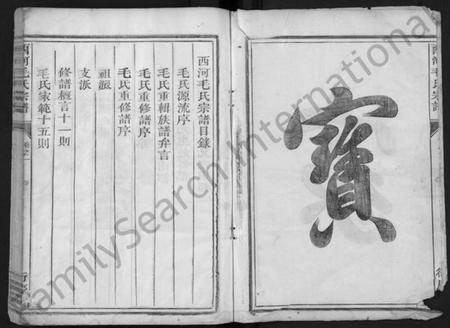 寶
西河毛氏宗譜
西河毛氏宗譜目錄
毛氏源流序
毛氏重輯族譜弁言
毛氏重修譜序
毛氏重修譜序
祖派
支派
修譜穜言十一則
毛氏家範十五則
西河毛氏宗譜
FamilySearch International